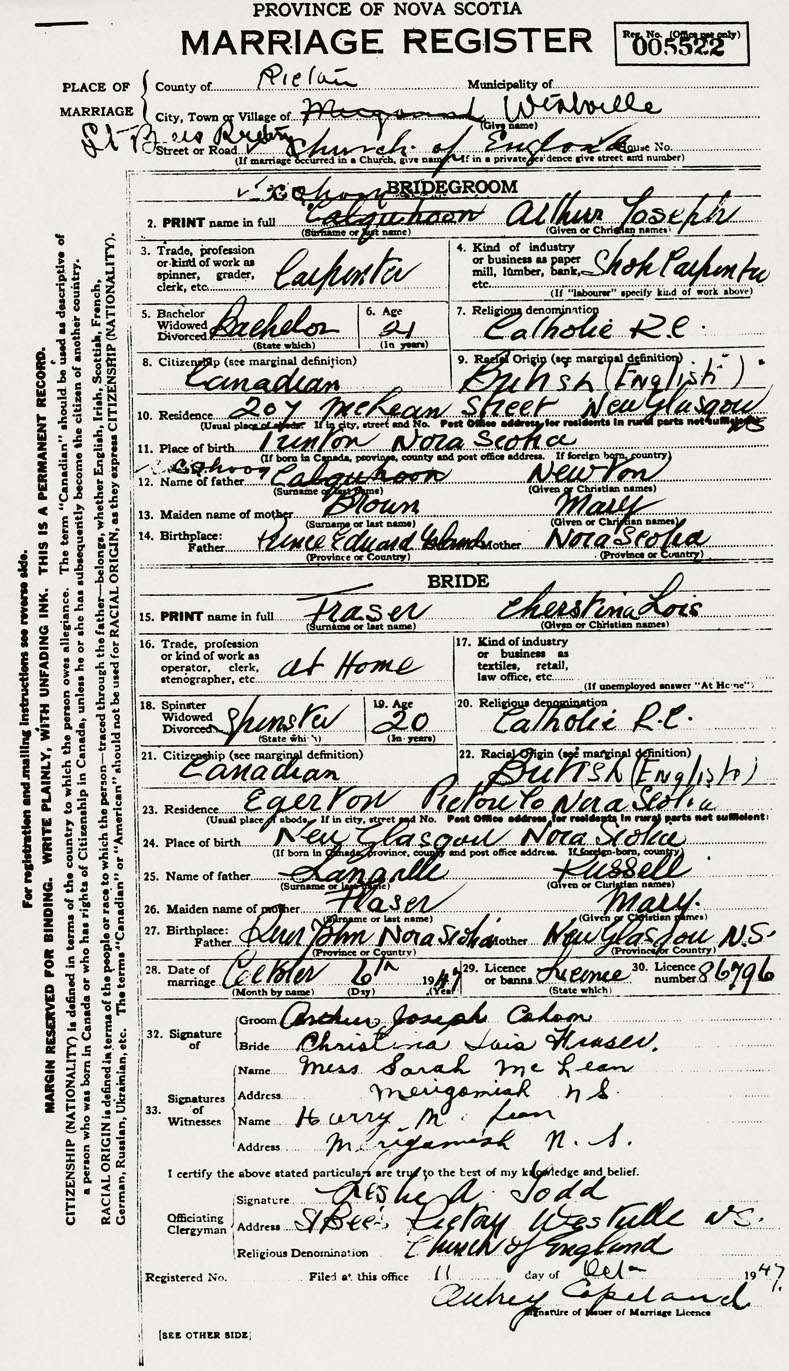 PROVINCE OF NOVA SCOTIA
MARRIAGE REGISTER
Reg. No. (Office use only)
005522
PLACE OF MARRIAGE
County of Pictou Municipality of
City, Town or Village of Merigomish Westville
(Give name)
St Bees Rectory
Street or Road Church of England House No.
(If marriage occurred in a Church, give name. If in a private residence give street and number)
BRIDEGROOM
Cohoon
2. PRINT name in full Calquhoon Arthur Joseph
(Surname or last name) (Given or Christian names)
3. Trade, profession or kind of work as spinner, grader, clerk, etc. Carpenter
4. Kind of industry or business as paper mill, lumber, bank, etc. Shop Carpenter
(If "labourer" specify kind of work above)
5. Bachelor Widowed Divorced Bachelor
(State which)
6. Age 21
(In years)
7. Religious denomination
Catholic R.C.
8. Citizenship (see marginal definition)
Canadian
9. Racial Origin (see marginal definition)
British (English)
10. Residence 207 McKean Street New Glasgow NS
(Usual place of abode. If in city, street and No. Post Office address for residents in rural parts not sufficient)
11. Place of birth Trenton Nova Scotia
(If born in Canada, province, county and post office address. If foreign born, country)
Cohoon
12. Name of father Calquhoon Newton
(Surname or last name) (Given or Christian names)
13. Maiden name of mother Brown Mary
(Surname or last name) (Given or Christian names)
14. Birthplace: Father Prince Edward Island Mother Nova Scotia
(Province or Country) (Province or Country)
BRIDE
15. PRINT name in full Fraser Cherstina Lois
(Surname or last name) (Given or Christian names)
16. Trade, profession or kind of work as operator, clerk, stenographer, etc. at Home
17. Kind of industry or business as textiles, retail, law office, etc.
(If unemployed answer "At Home")
18. Spinster Widowed Divorced Spinster
(State which)
19. Age 20
(In years)
20. Religious denomination
Catholic R.C.
21. Citizenship (see marginal definition)
Canadian
22. Racial Origin (see marginal definition)
British (English)
23. Residence Egerton Pictou Co Nova Scotia
(Usual place of abode. If in city, street and No. Post Office address for residents in rural parts not sufficient)
24. Place of birth New Glasgow Nova Scotia
(If born in Canada, province, county and post office address. If foreign-born, country)
25. Name of father Langille Russell
(Surname or last name) (Given or Christian names)
26. Maiden name of mother Fraser Mary.
(Surname or last name) (Given or Christian names)
27. Birthplace: Father River John Nova Scotia Mother New Glasgow N.S.
(Province or Country) (Province or Country)
28. Date of marriage October 6th 1947
(Month by name) (Day) (Year)
29. Licence or banns License
(State which)
30. Licence number 86796
32. Signature of
Groom Arthur Joseph Cohoon
Bride Christina Lois Fraser.
33. Signatures of Witnesses
Name Miss Sarah McLean
Address Merigomish N S.
Name Harry M Lean
Address Merigomish N. S.
I certify the above stated particulars are true to the best of my knowledge and belief.
Officiating Clergyman
Signature Leslie A. Todd
Address St Bee's Rectory Westville NS.
Religious Denomination Church of England
Registered No. Filed at this office 11 day of Oct 1947.
Aubrey Copeland
Signature of Issuer of Marriage Licence
[SEE OTHER SIDE]
For registration and mailing instructions see reverse side.
MARGIN RESERVED FOR BINDING. WRITE PLAINLY, WITH UNFADING INK. THIS IS A PERMANENT RECORD.
CITIZENSHIP (NATIONALITY) is defined in terms of the country to which the person owes allegiance. The term "Canadian" should be used as descriptive of
a person who was born in Canada or who has rights of Citizenship in Canada, unless he or she has subsequently become the citizen of another country.
RACIAL ORIGIN is defined in terms of the people or race to which the person—traced through the father—belongs, whether English, Irish, Scottish, French,
German, Russian, Ukrainian, etc. The terms "Canadian" or "American" should not be used for RACIAL ORIGIN, as they express CITIZENSHIP (NATIONALITY).